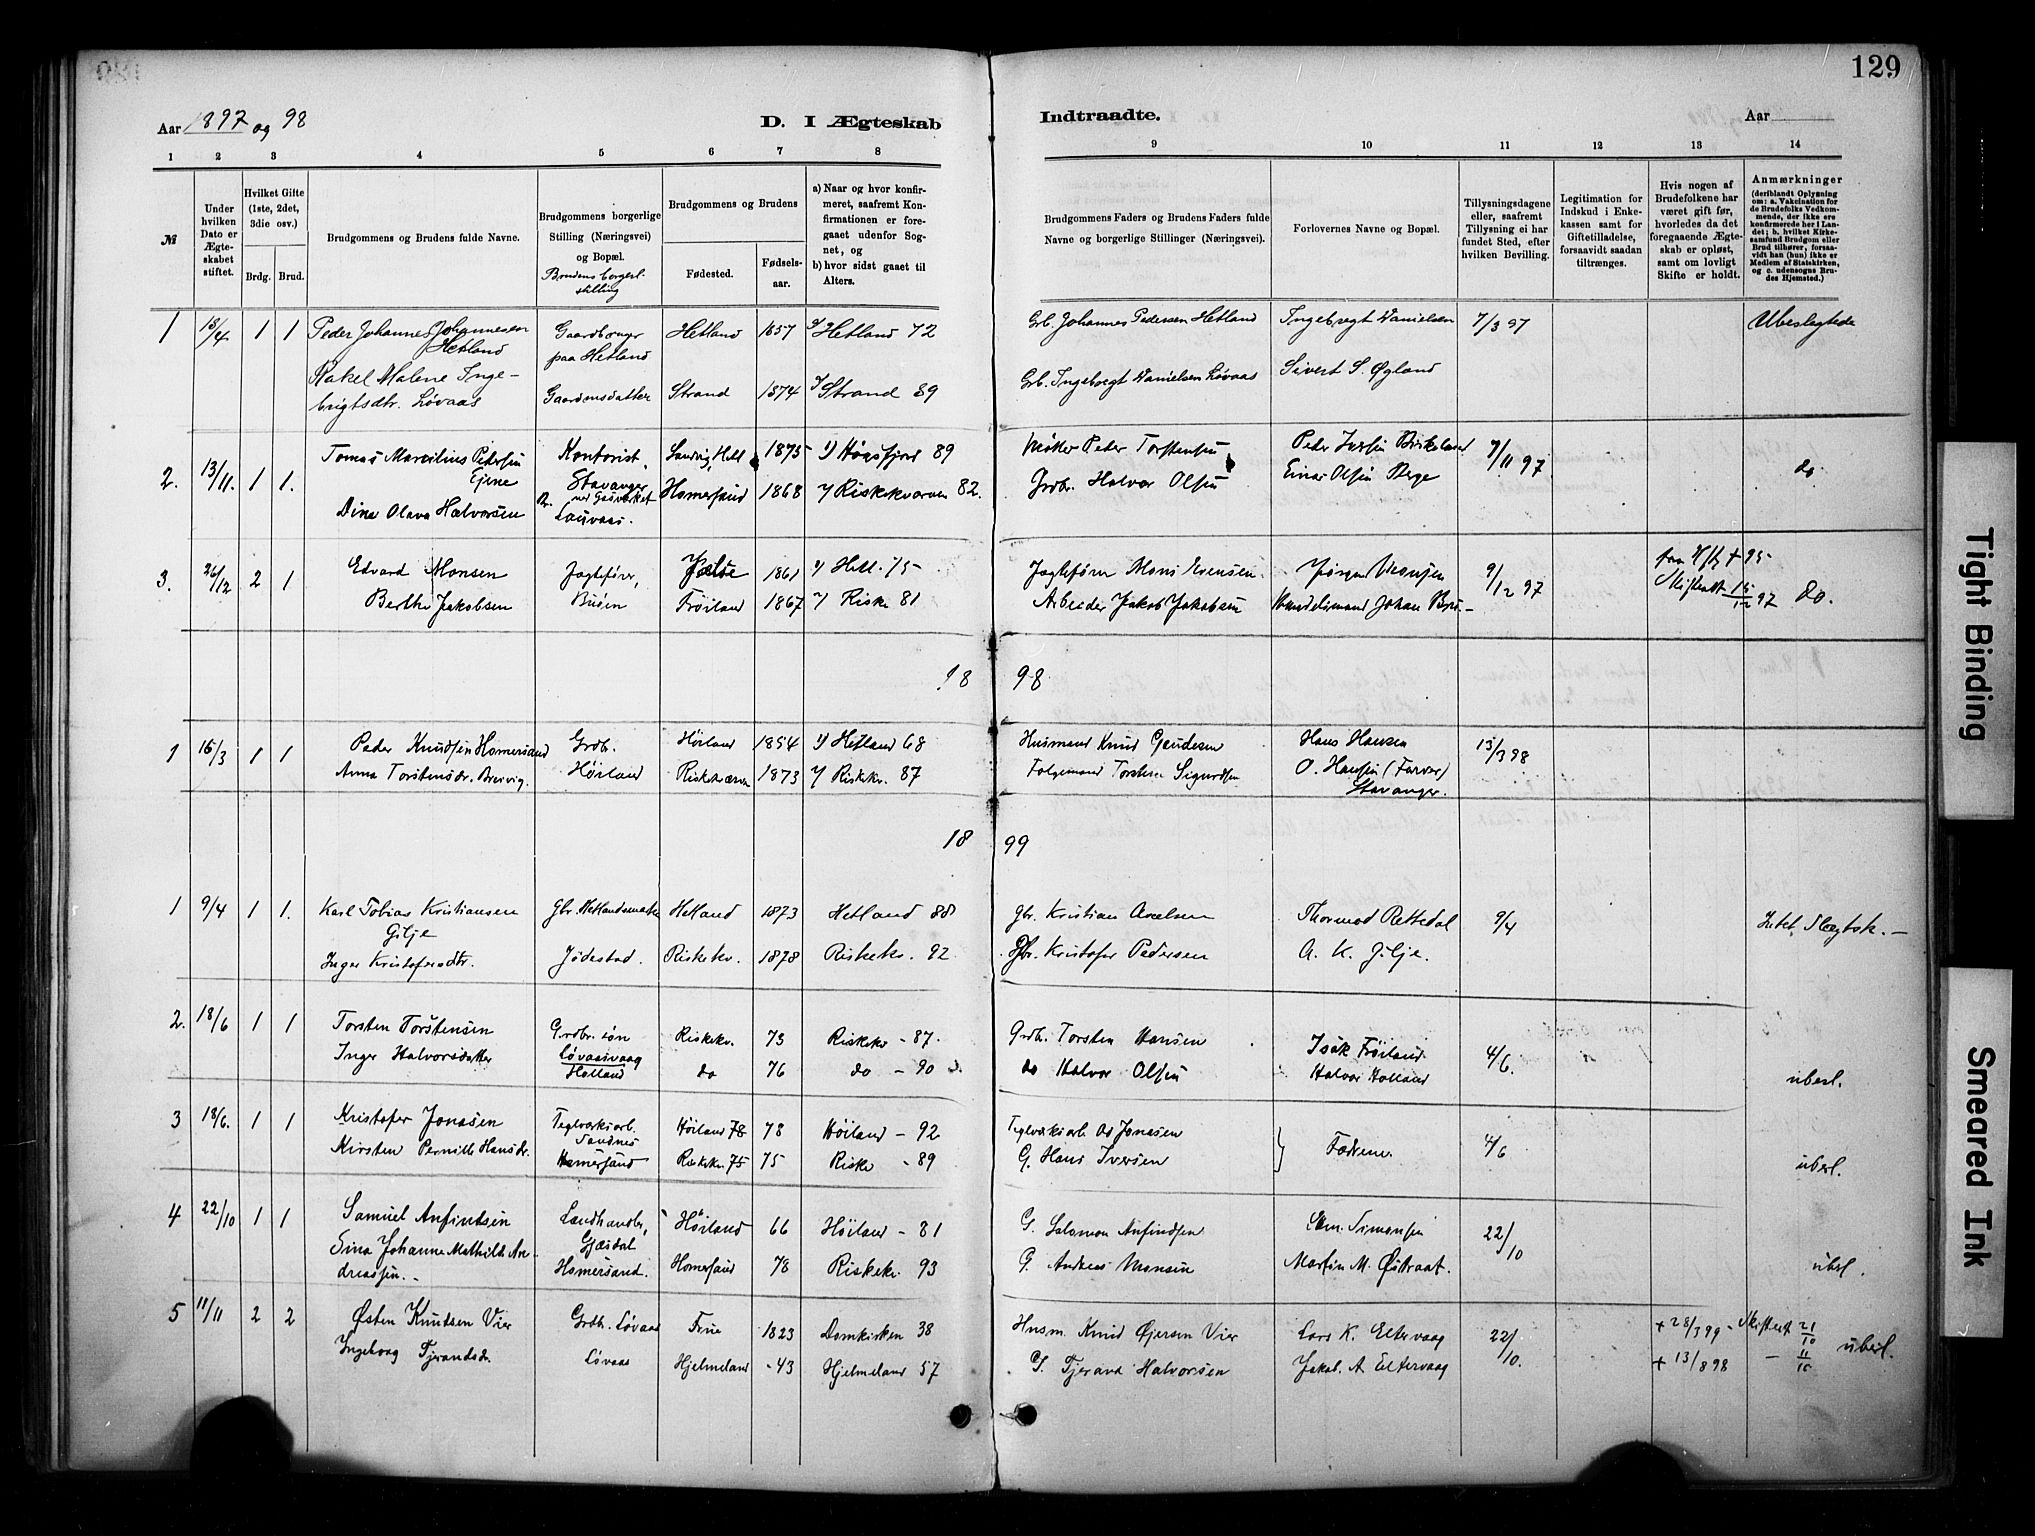 129
Aar 1897 og 98
D. I Ægteskab
Indtraadte.
Aar
1 2 3 4 5 6 7 8 9 10 11 12 13 14
№
Under hvilken Dato er Ægteskabet stiftet.
Hvilket Gifte (1ste, 2det, 3die osv.)
Brdg. Brud.
Brudgommens og Brudens fulde Navne.
Brudgommens borgerlige Stilling (Næringsvei) og Bopæl.
Brudens borgerl. stilling
Brudgommens og Brudens
Fødested.
Fødselsaar.
a) Naar og hvor konfirmeret, saafremt Konfirmationen er foregaaet udenfor Sognet, og
b) hvor sidst gaaet til Alters.
Brudgommens Faders og Brudens Faders fulde Navne og borgerlige Stillinger (Næringsvei).
Forlovernes Navne og Bopæl.
Tillysningsdagene eller, saafremt Tillysning ei har fundet Sted, efter hvilken Bevilling.
Legitimation for Indskud i Enkekassen samt for Giftetilladelse, forsaavidt saadan tiltrænges.
Hvis nogen af Brudefolkene har været gift før, hvorledes da det foregaaende Ægteskab er opløst, samt om lovligt Skifte er holdt.
Anmærkninger
(deriblandt Oplysning om: a. Vakcination for de Brudefolks Vedkommende, der ikke ere konfirmerede her i Landet; b. hvilket Kirkesamfund Brudgom eller Brud tilhører, forsaavidt han (hun) ikke er Medlem af Statskirken, og c. udensogns Brudes Hjemsted.)
1 18/4 1 1 Peder Johannes Johannessen Hetland Gaardbruger paa Hetland Hetland 1857 Hetland 72 Grb. Johannes Pedersen Hetland Ingebregt Danielsen 7/3 97 Ubeslegtede
Rakel Malene Ingebrigtsdtr. Løvaas Gaardmsdatter Strand 1874 Strand 89 Grb. Ingebregt Danielsen Løvaas Sivert S. Øgland
2. 13/11. 1 1. Tomas Marcilius Pedersen Kontorist, Stavanger 1875 Høgsfjord 89 Peder Torstensen Peder 7/11 97 do
Dina Olava Halvorsen Lauvaas. Homersand 1868 Riskekvarven 82. Grdbr. Halvor Olsen Einar Olsen Berge
3. 26/12 2 1 Edvard Monsen Jagtefører, Jælse 1861 Hetl. 75 Jagtefører Mons Evensen Jørgen 9/12 97 + 95 Skifteatt. 15/12 97 do.
Berthe Jakobsen Frøiland 1867 Riske 81 Arbeider Jakob Jakobsen Handelsmand Johan
18 98
1 16/3 1 1 Peder Knudsen Homersand Grdb. Høiland 1854 Hetland 68 Husmand Knud Gaudesen Hans Hansen 13/3 98
Anna Torstensdr. Breivig. Høiland 1873 Riskekv. 87 Torsten Sigurdsen O. Hansen (Farver) Stavanger.
18 99
1 9/4 1 1. Karl Tobias Kristiansen Gilje Gbr. Hetland 1873 Hetland 88 Gbr. Kristian Axelsen Thormod Rettedal 9/4 Intet Slægtsk.
Inger Kristofersdtr. Jødestad. Riskekv. 1878 Riskekv. 92 Gbr. Kristofer Pedersen A. K. Gilje.
2. 18/6 1 1 Torsten Torstensen Grdbr. søn Løvaasvaag Riskekv. 73 Riskekv - 87. Grdb. Torsten Hansen Isak Frøiland 4/6. ubesl.
Inger Halvorsdatter Holland do 76 do - 90 do Halvor Olsen Halvor Holland
3 18/6. 1 1 Kristofer Jonasen Teglverksarb. Sandnes Høiland 78 78 Høiland - 92 Teglverksarb Jonasen Fædrene 4/6 ubesl.
Kirsten Pernille Hansdr. Homersand Riskekv. 75 75 Riske - 89 G. Hans Iversen
4 22/10 1 1 Samuel Anfindsen Landhandler, Gjæsdal Høiland 66 Høiland - 81 G. Salomon Anfindsen Simonsen 22/10 ubesl.
Sina Johanne Mathilde Andreassen. Homersand. Homersand 78 Riskekv. 93 G. Andreas Monsen Martin M. Østraat.
5 11/11 2 2 Østen Knudsen Vier Grdb. Løvaas Frue 1823 Domkirken 38 Husm. Knud Øjersen Vier Lars K. Eltervaag 22/10. + 28/3 99 - Skifteatt 21/10 ubesl.
Ingeborg Tjerandsdr Løvaas Hjelmeland - 43 Hjelmeland 57 G. Tjerand Halvorsen Jakob A Eltervaag + 13/8 98
Tight Binding
Smeared Ink